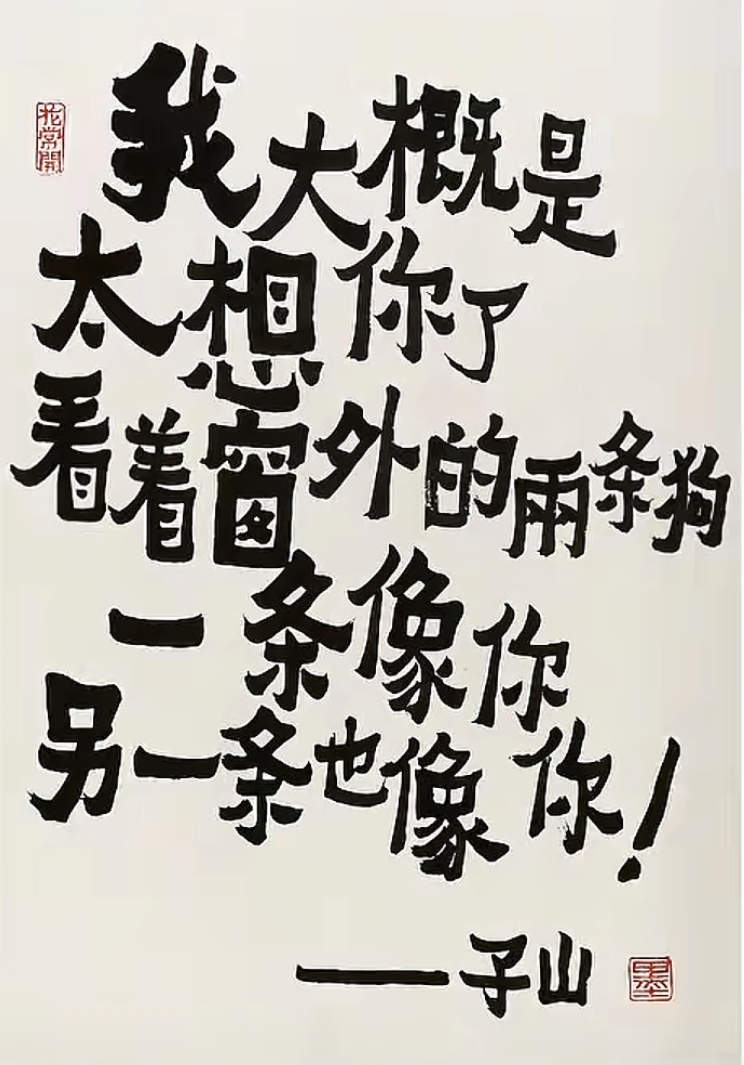 花常開
我大概是
太想你了
看着窗外的兩条狗
一条像你
另一条也像你!
——子山
墨